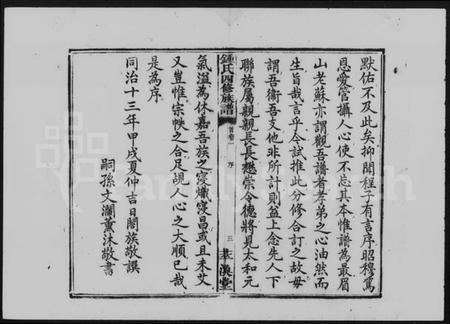 默佑不及此矣抑聞程子有言序昭穆篤
恩愛管攝人心使不忘其本惟譜為最眉
山老蘇亦謂觀吾譜者孝弟之心油然而
生旨哉言乎今試推此分修合訂之故毋
謂吾衛吾支他非所計則益上念先人下
聯族屬親親長長懋崇令德將見太和元
氣溢為休嘉吾族之寖熾寖昌或且未艾
又豈惟宗帙之合足覘人心之大順已哉
是為序
同治十三年甲戌夏仲吉日闔族敬譔
嗣孫文瀾薰沐敬書
鍾氏四修族譜
首卷一
序
三
漢堂